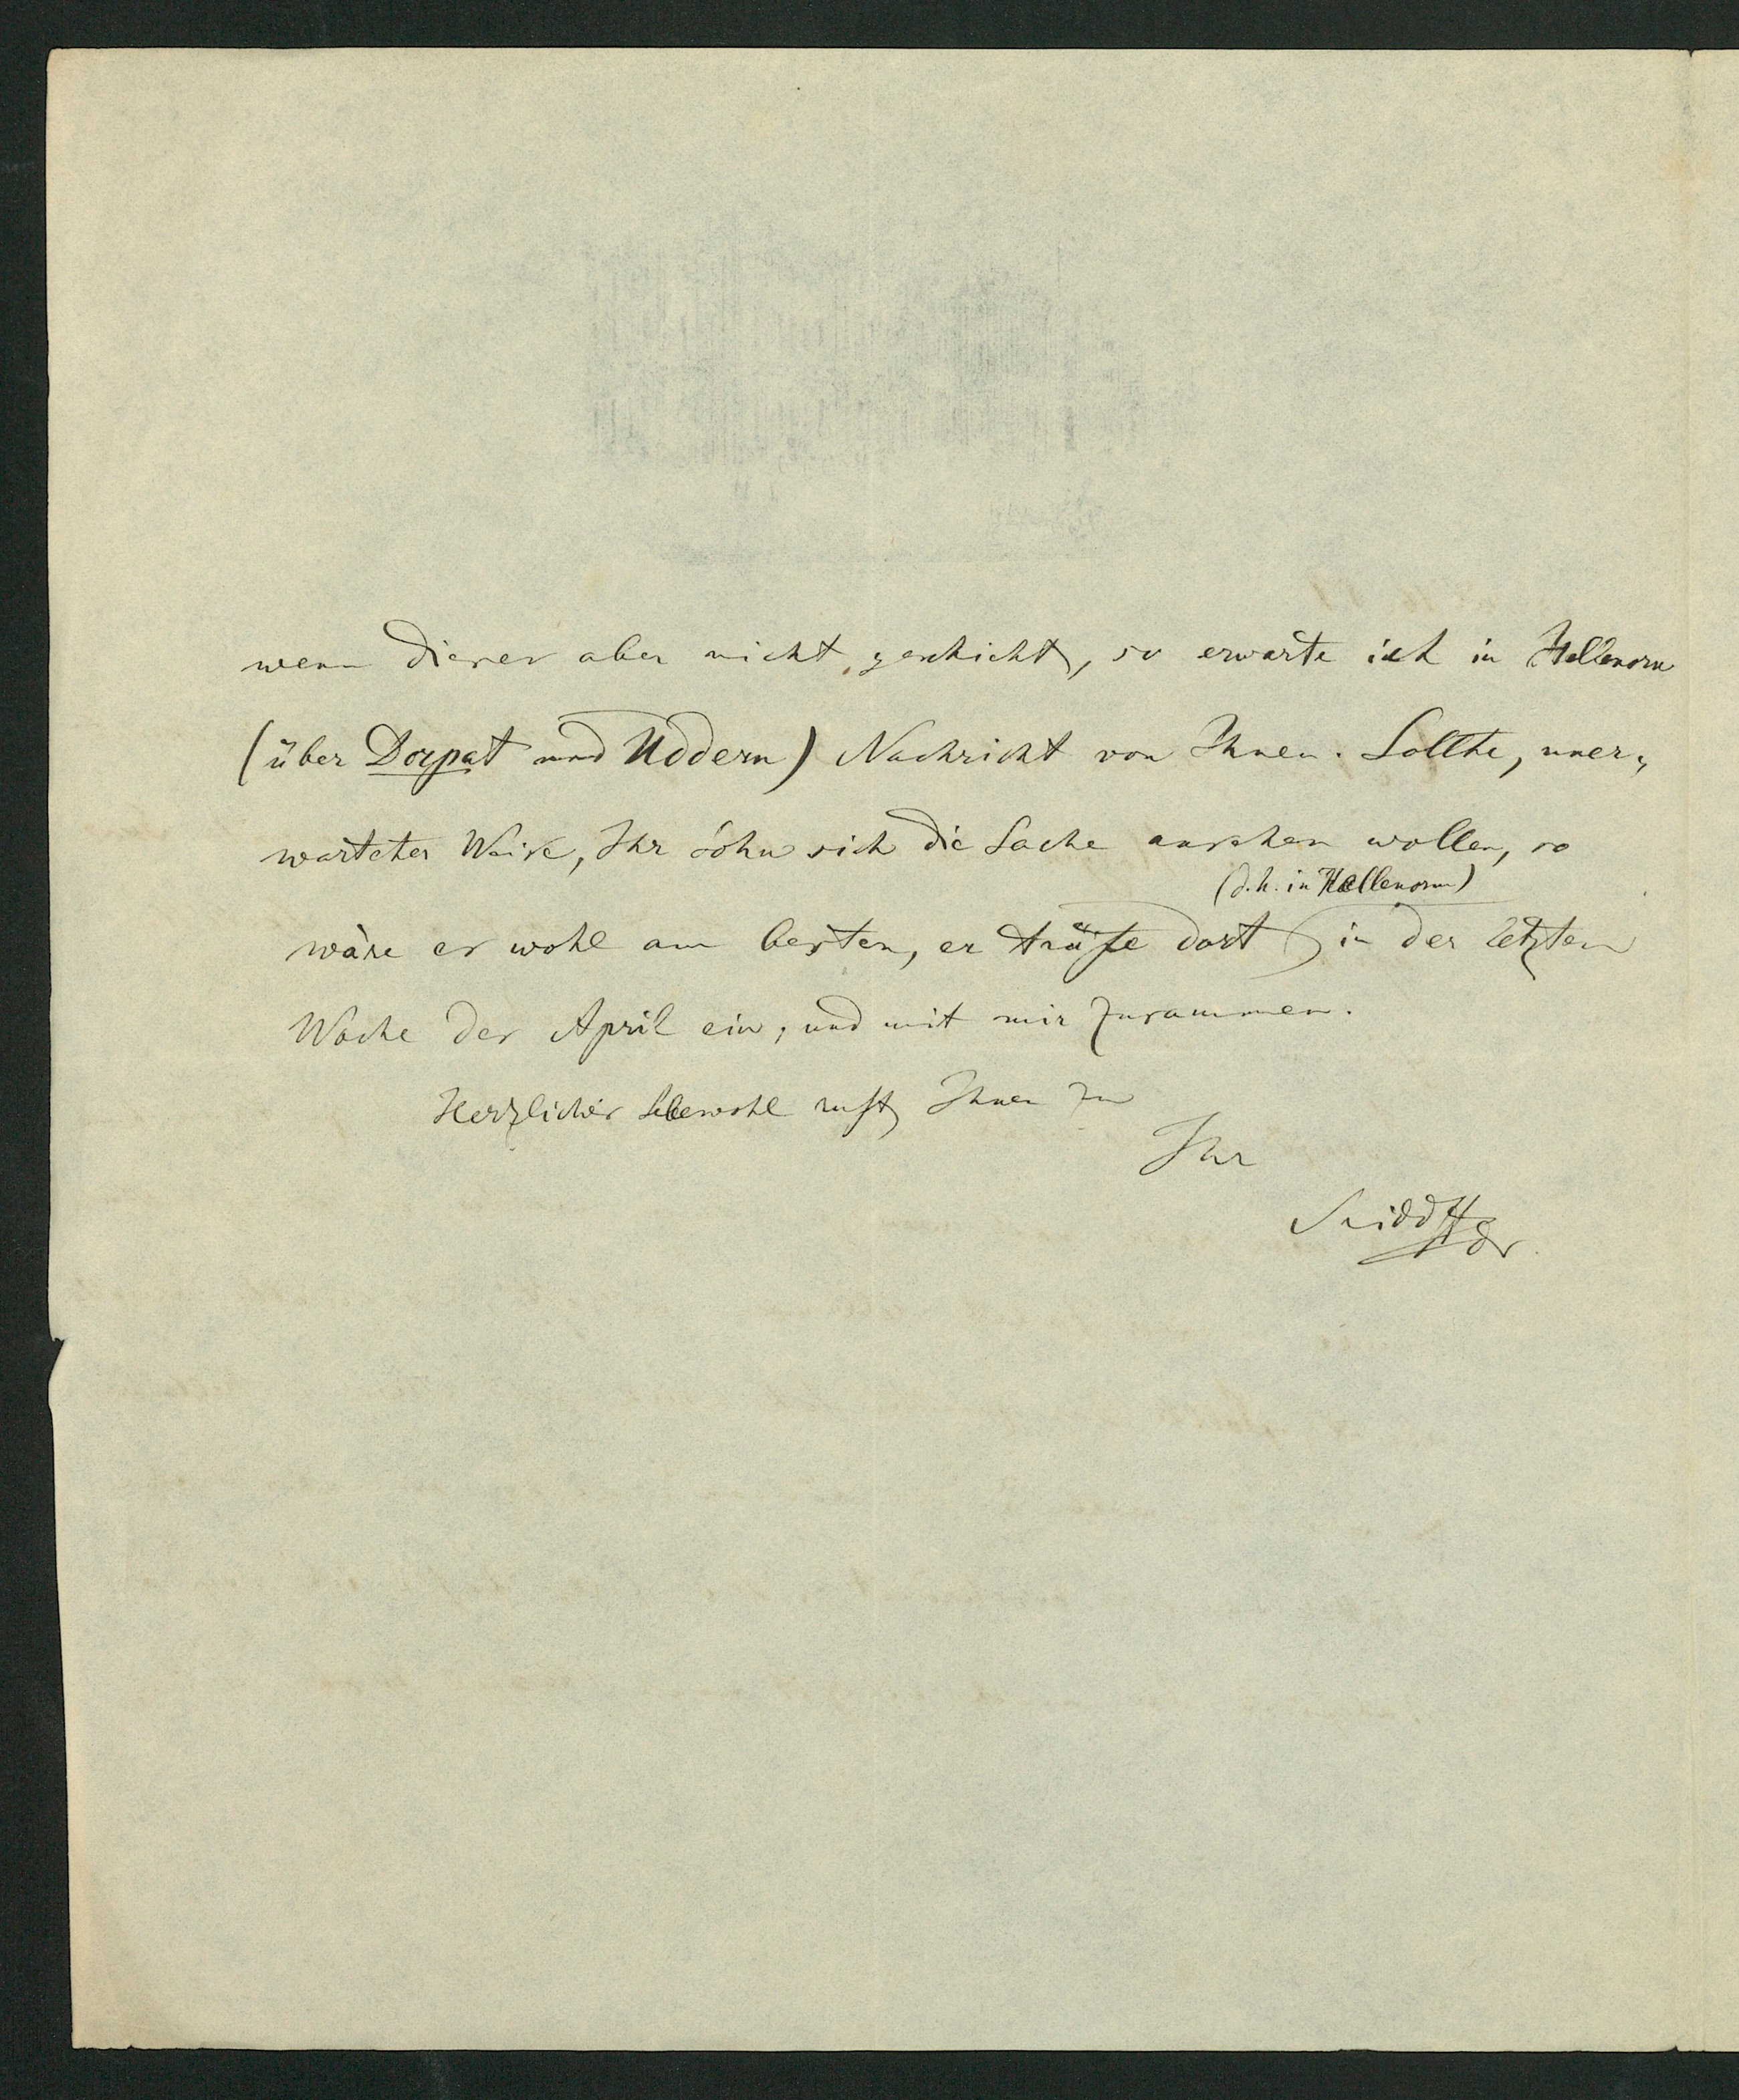 wenn dieses aber nicht geschieht, so erwarte ich in Hellenorm
(über Dorpat und Uddern) Nachricht von Ihnen. Sollte, uner-
warteter Weise, Ihr Sohn sich die Sache ansehen wollen, so
(d. h. in Hellenorm)
wäre es wohl am besten, er träfe dort in der letzten
Woche des April ein, und mit mir zusammen.
Herzliches Lebewohl ruft Ihnen zu
Ihr